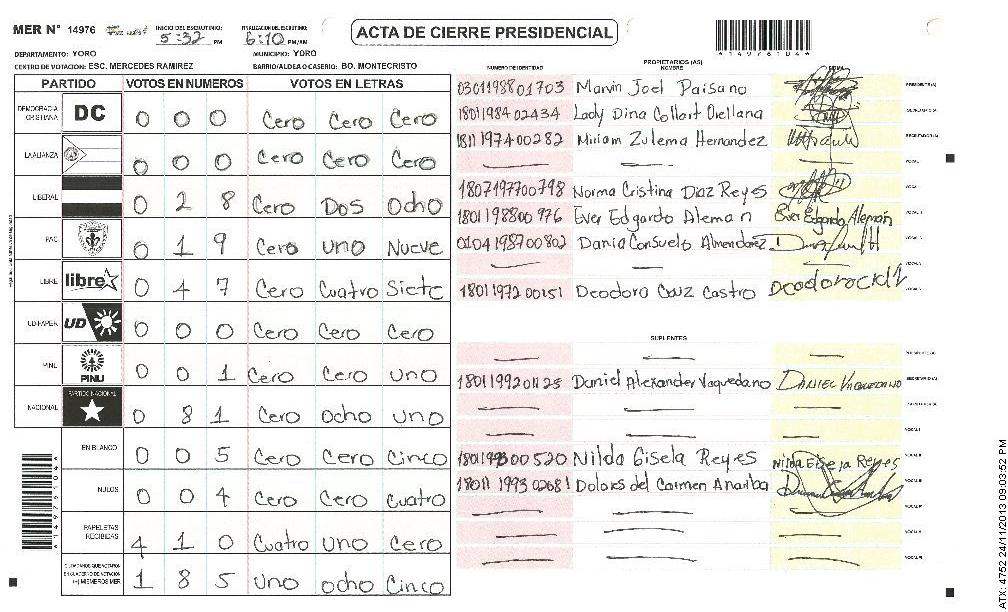 MER N° 14976 INICIO DEL ESCRUTINIO: 5:32 PM FINALIZACION DEL ESCRUTINIO: 6:10 PM/AM
ACTA DE CIERRE PRESIDENCIAL
*14976104*
DEPARTAMENTO: YORO MUNICIPIO: YORO
CENTRO DE VOTACION: ESC. MERCEDES RAMIREZ BARRIO/ALDEA O CASERIO: BO. MONTECRISTO
PARTIDO VOTOS EN NUMEROS VOTOS EN LETRAS
DEMOCRACIA CRISTIANA DC 0 0 0 Cero Cero Cero
LA ALIANZA 0 0 0 Cero Cero Cero
LIBERAL 0 2 8 Cero Dos Ocho
PAC 0 1 9 Cero uno Nueve
LIBRE libre 0 4 7 Cero Cuatro Siete
UD-FAPER UD 0 0 0 Cero Cero Cero
PINU PINU 0 0 1 Cero Cero uno
NACIONAL PARTIDO NACIONAL 0 8 1 Cero ocho uno
EN BLANCO 0 0 5 Cero Cero Cinco
NULOS 0 0 4 Cero Cero Cuatro
PAPELETAS RECIBIDAS 4 1 0 Cuatro uno Cero
CIUDADANOS QUE VOTARON EN CUADERNO DE VOTACION (+) MIEMBROS MER 1 8 5 uno ocho Cinco
PROPIETARIOS (AS)
NUMERO DE IDENTIDAD NOMBRE FIRMA
0301198801703 Marvin Joel Paisano PRESIDENTE(A)
1801198402434 Lady Dina Collart Orellana SECRETARIO(A)
1811197400282 Miriam Zulema Hernandez ESCRUTADOR(A)
VOCAL I
1807197700798 Norma Cristina Diaz Reyes
1801198800976 Ever Edgardo Aleman Ever Edgardo Alemán
0104198700802 Dania Consuelo Almendarez
1801197200151 Deodoro Cruz Castro
SUPLENTES
1801199201125 Daniel Alexander Vaquedano DANIEL VAQUEDANO SECRETARIO(A)
Nilda Gisela Reyes Nilda Gisela Reyes
1801199302081 Dolores del Carmen Anariba
ATX: 4752 24/11/2013 09:03:52 PM